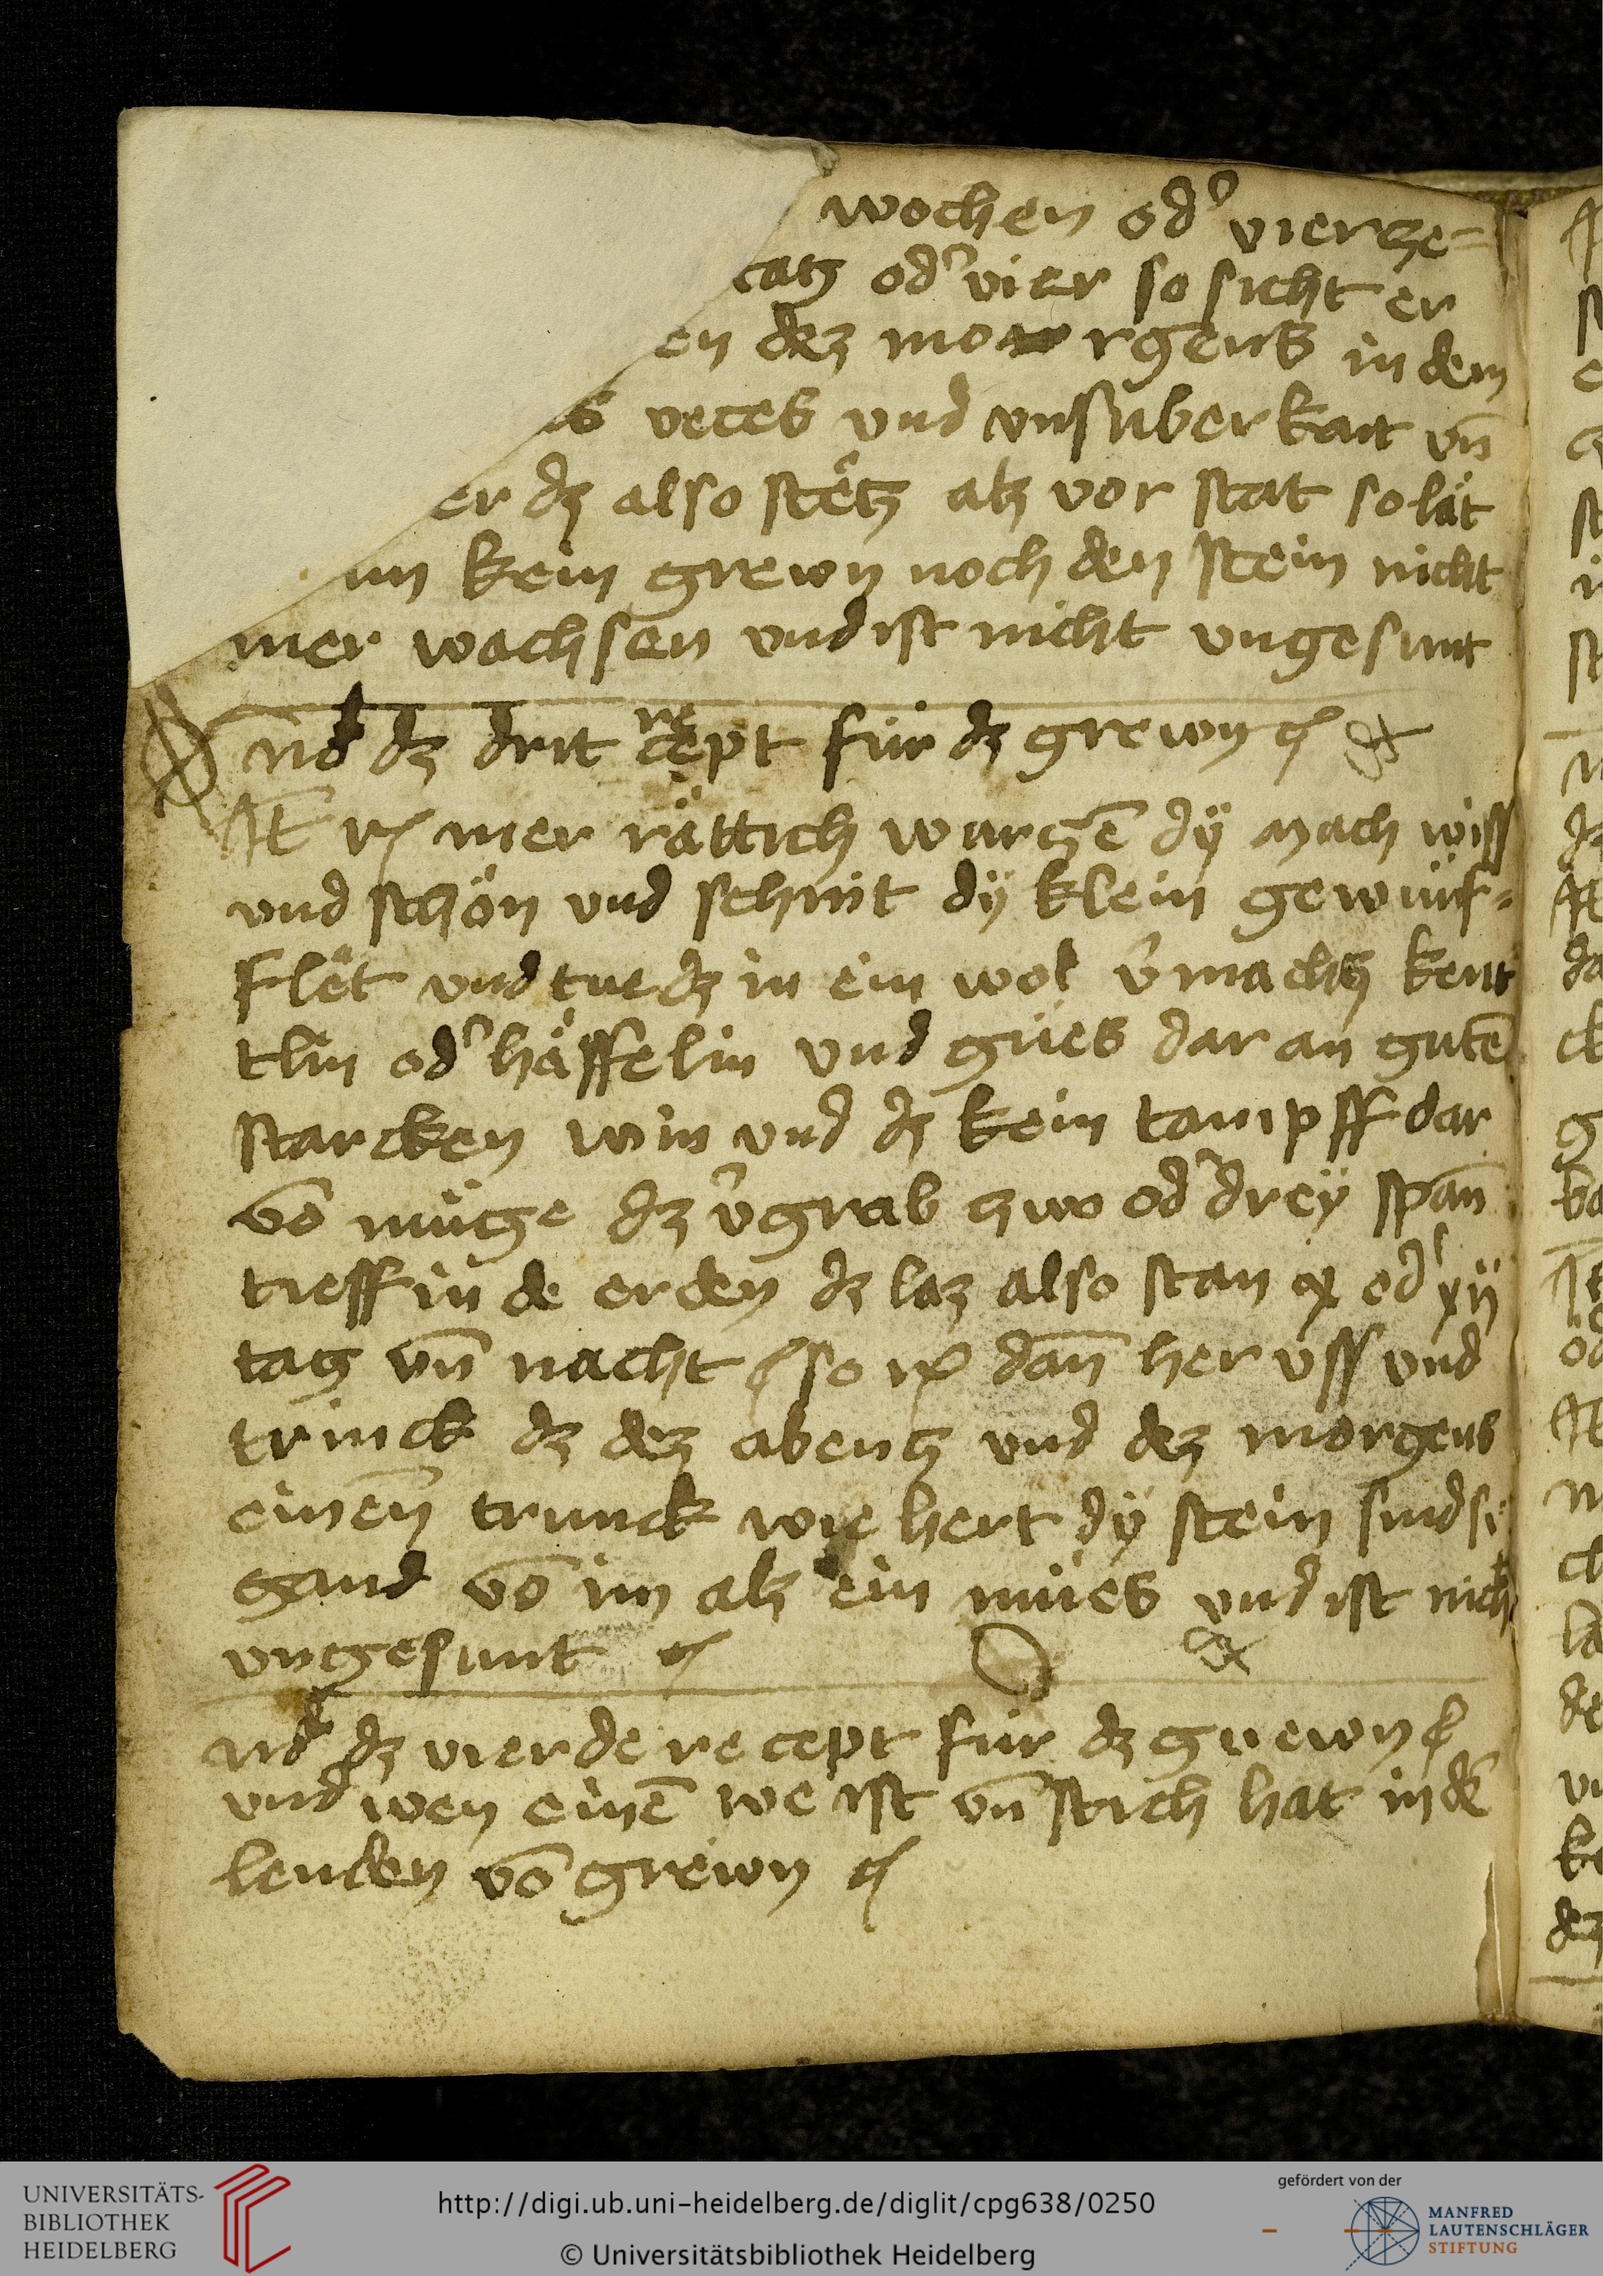 wochen od' vierze-
tag od' vier so sicht er
en dez morgens in dem
vetes vnd vnsuberkait vñ
er dz also stetz alz vor stat so lät
im kein grewn noch den stein nicht
mer wachsen vnd ist nicht vngesunt
nd dz drit recept für dz grewn
It rͫ mer rättich wurczē dÿ mach wiss
vnd schön vnd schnit dÿ klein gewürf-
flet vnd tue dz in ein wol v'machtz kent
tlin od' häffelin vnd gües dar an gutē
starcken win vnd dz kein tampff dar
vō müge dz v'grab zwo od' dreÿ span̄
tieff in de erden dz laz also stan x od' xij
tag vn̄ nacht so dan̄ her vss vnd
trinck dz dez abentz vnd dez morgens
einen̄ trunck wie hert dÿ stein sind si
gand vō im alz ein mües vnd ist nicht
vngesunt
nd dz vierde recept für dz grewn
vnd wen einē we ist vn̄ stich hat in dē
lenden vō grewn
UNIVERSITÄTS-
BIBLIOTHEK
HEIDELBERG
http://digi.ub.uni-heidelberg.de/diglit/cpg638/0250
© Universitätsbibliothek Heidelberg
gefördert von der
MANFRED
LAUTENSCHLÄGER
STIFTUNG